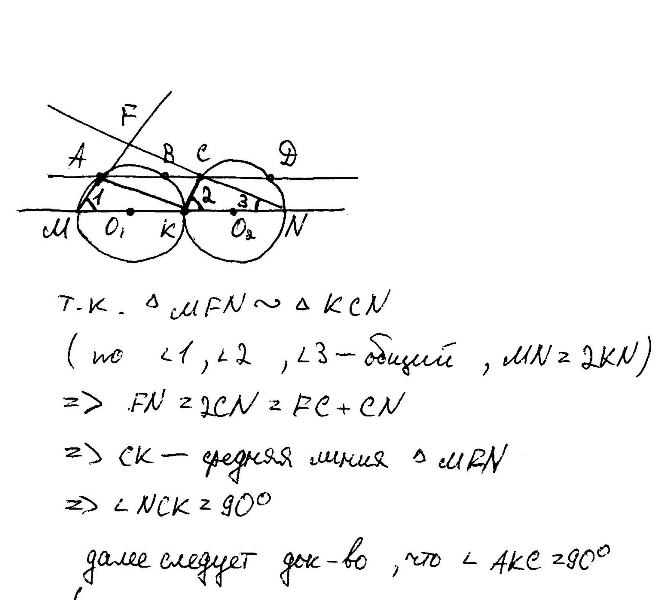 F
A B C D
1 2 3
M O₁ K O₂ N
т.к. △ MFN ∾ △ KCN
( по ∠1, ∠2 , ∠3 – общий , MN = 2KN)
=> FN = 2CN = FC + CN
=> CK – средняя линия △ MFN
=> ∠ NCK = 90°
далее следует док-во , что ∠ AKC = 90°